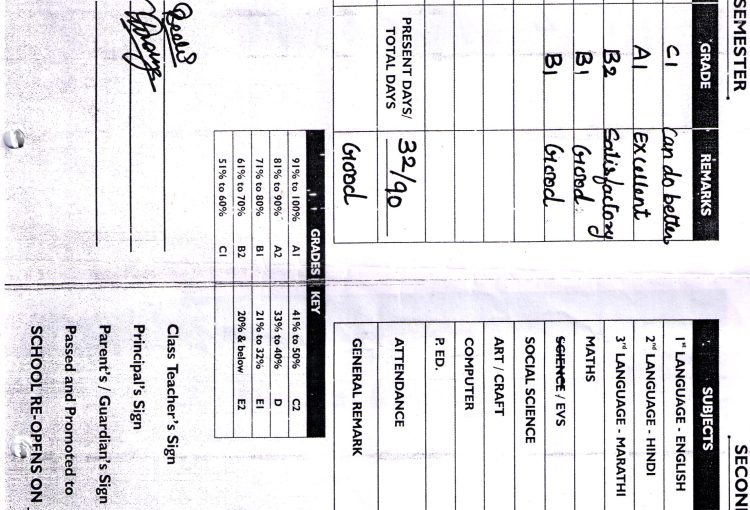 SEMESTER
GRADE REMARKS
C1 Can do better
A1 Excellent
B2 Satisfactory
B1 Good
B1 Good
PRESENT DAYS/
TOTAL DAYS 32/90
Good
SUBJECTS
1st LANGUAGE - ENGLISH
2nd LANGUAGE - HINDI
3rd LANGUAGE - MARATHI
MATHS
SCIENCE / EVS
SOCIAL SCIENCE
ART / CRAFT
COMPUTER
P. ED.
ATTENDANCE
GENERAL REMARK
GRADES KEY
91% to 100% A1 41% to 50% C2
81% to 90% A2 33% to 40% D
71% to 80% B1 21% to 32% E1
61% to 70% B2 20% & below E2
51% to 60% C1
Class Teacher's Sign
Principal's Sign
Parent's / Guardian's Sign
Passed and Promoted to
SCHOOL RE-OPENS ON